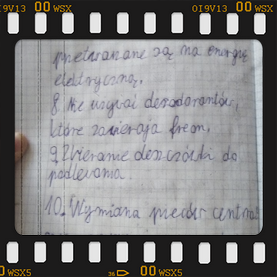 OI9V13 00 WSX OI9V13 00 WSX
przetwarzane są na energię
elektryczną.
8. Nie używać dezodorantów,
które zawierają freon.
9. Zbieranie deszczówki do
podlewania.
10. Wymiana pieców central
00 WSX5 36 00 WSX5